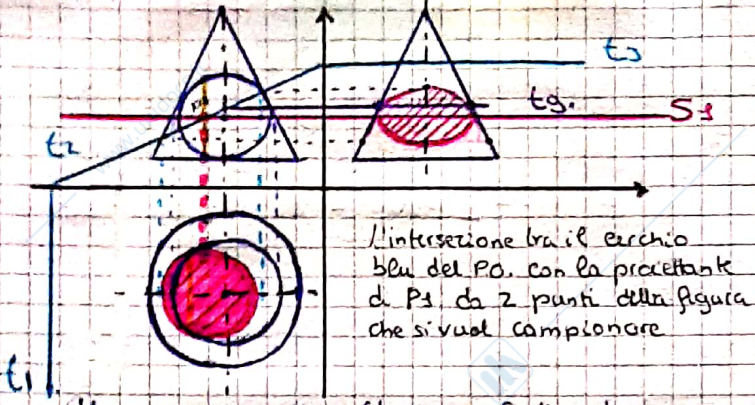 t3
tg.
S1
t2
L'intersezione tra il cerchio
blu del PO. con la proiettante
di P1 da 2 punti della figura
che si vuol campionare
t1